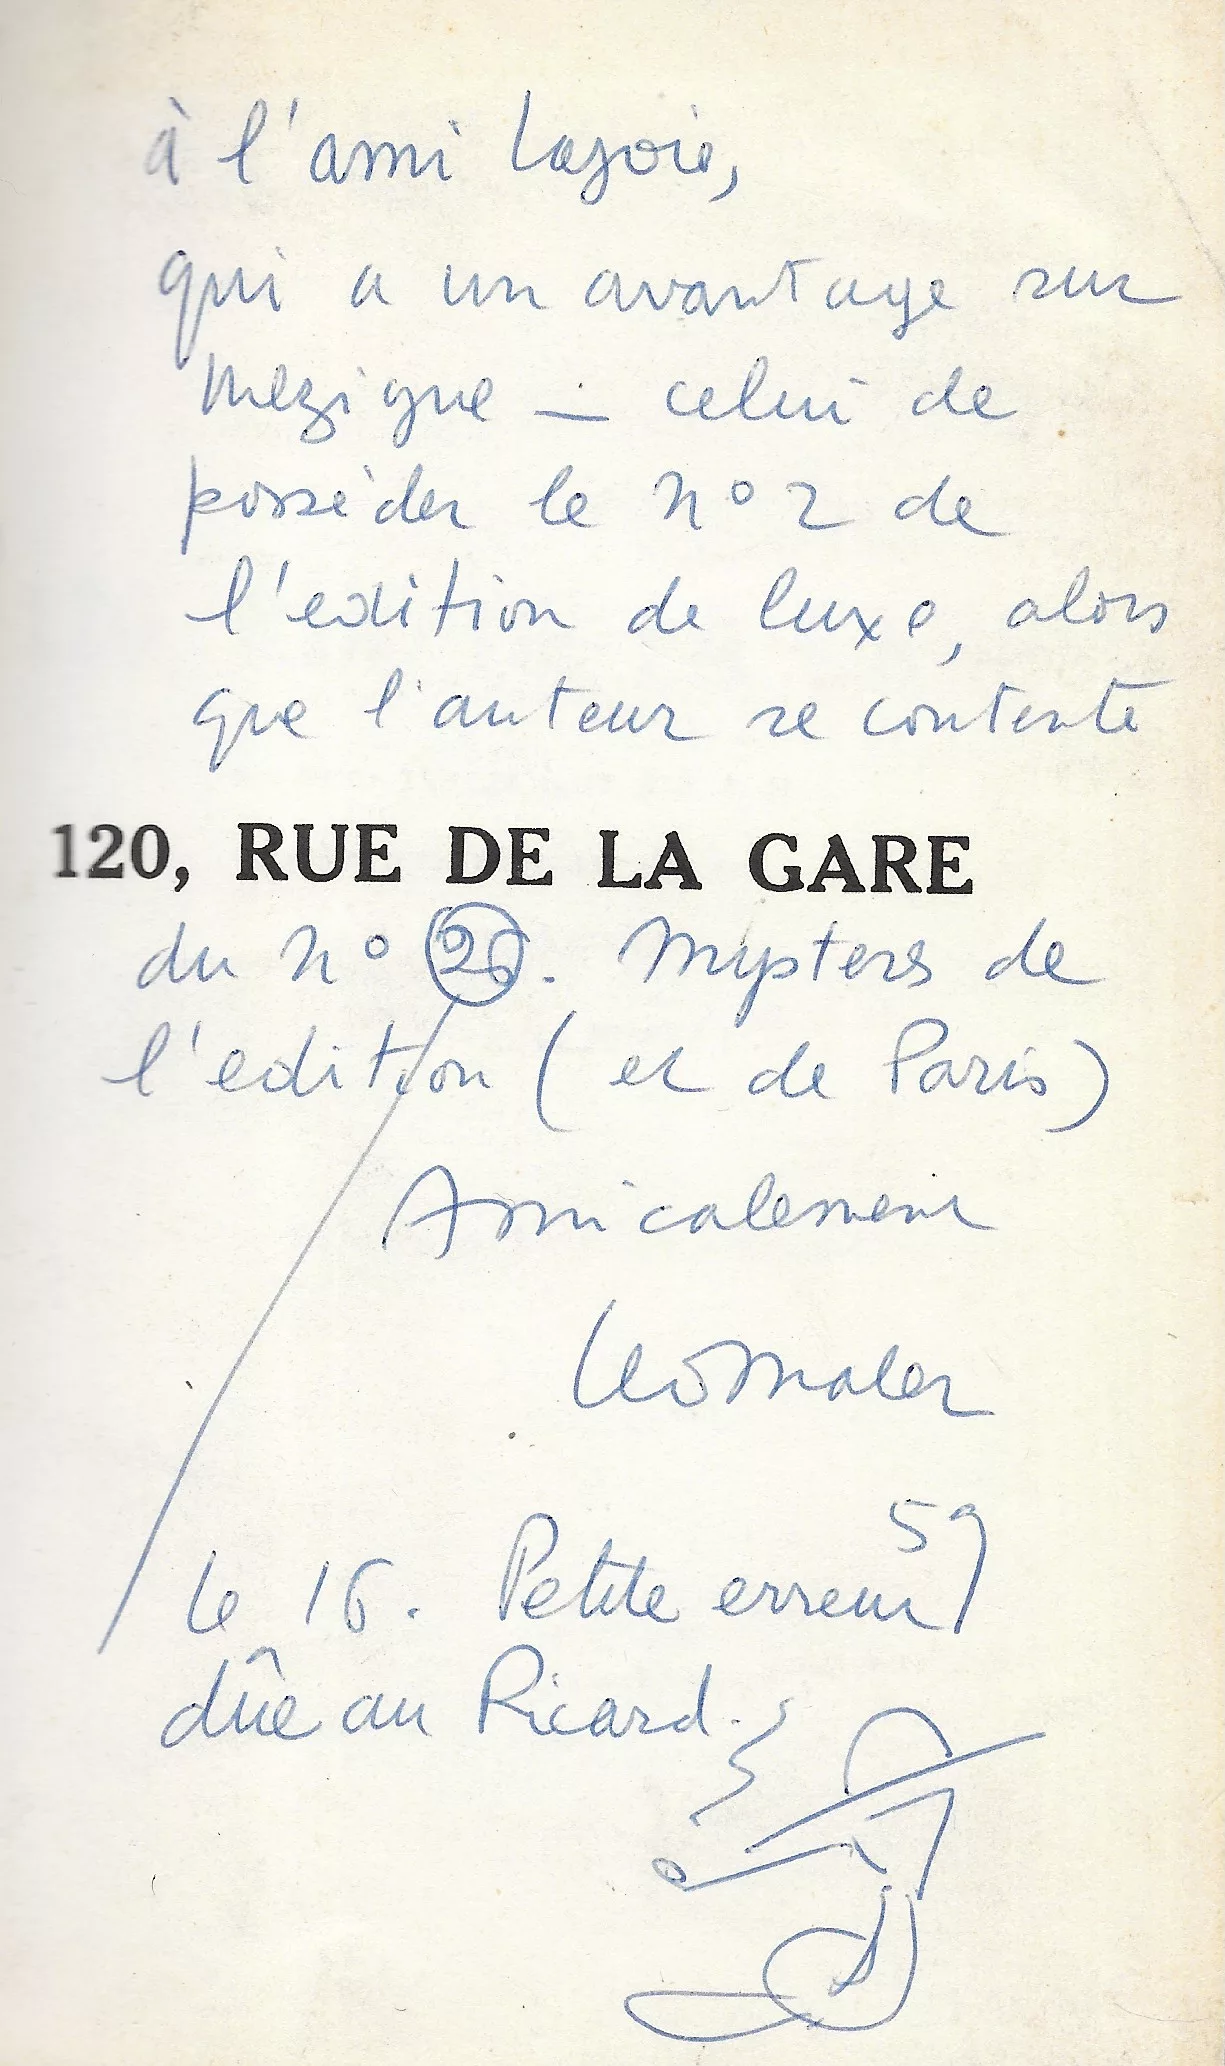 à l'ami Lajoie,
qui a un avantage sur
mezigue — celui de
posséder le n° 2 de
l'edition de luxe, alors
que l'auteur se contente
120, RUE DE LA GARE
du n° 26. Mysteres de
l'edition (et de Paris)
Amicalement
Leo Malet
59
le 16. Petite erreur
dûe au Ricard.